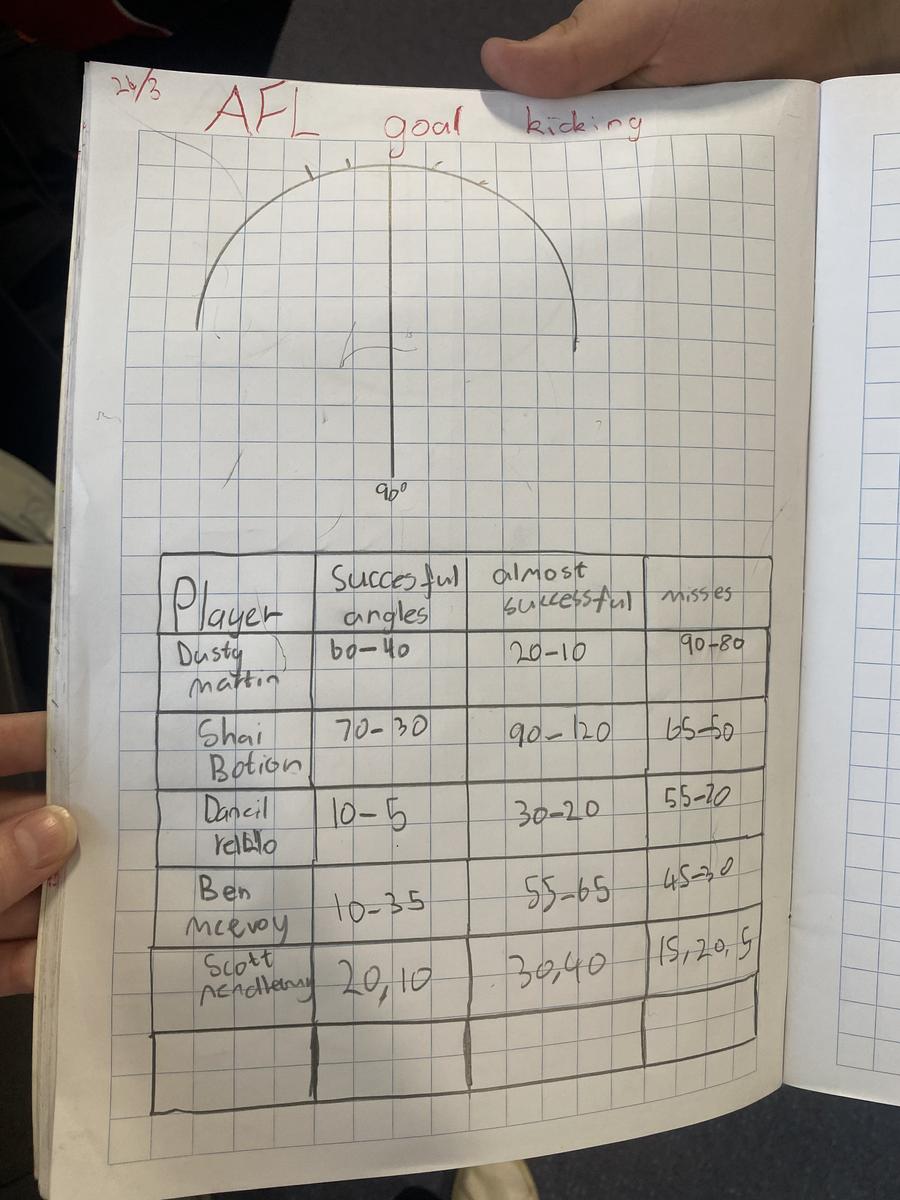 26/3
AFL goal kicking
90°
Player
Succesful angles
almost successful
misses
Dusty martin
60-40
20-10
90-80
Shai Botion
70-30
90-120
65-50
10-5
30-20
55-20
Ben mcevoy
10-35
55-65
45-30
Scott
20,10
30,40
15,20,5